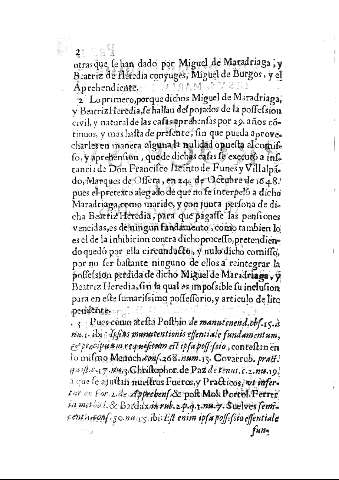 2
otras que se han dado por Miguel de Maradriaga, y
Beatriz de Heredia conyuges, Miguel de Burgos, y el
Aprehendiente.
2 Lo primero, porque dichos Miguel de Maradriaga,
y Beatriz Heredia, se hallan despojados de la possession
civil, y natural de las casas aprehensas por 29. años cō-
tinuos, y mas hasta de presente, sin que pueda aprove-
charles en manera alguna la nulidad opuesta al comis-
so, y aprehension, que de dichas casas se executò a ins-
tancia de Don Francisco Jacinto de Funes y Villalpā-
do, Marques de Ossera, en 24. de Octubre de 1648.
pues el pretexto alegado de que no se interpelò a dicho
Maradriaga, como marido, y con junta persona de di-
cha Beatriz Heredia, para que pagasse las pensiones
vencidas, es de ningun fundamento, como tambien lo
es el de la inhibicion contra dicho processo, pretendien-
do quedò por ella circunducto, y nulo dicho comisso,
por no ser bastante ninguno de ellos a reintegrar la
possession perdida de dicho Miguel de Maradriaga, y
Beatriz Heredia, sin la qual es impossible su inclusion
para en este sumarissimo possessorio, y articulo de lite
penente.
3 Pues como atesta Posthio de manutenend. obs. 15. à
nu. 1. ibi: Ipsius manutentionis essentiale fundamentum,
et præcipuum requisitum est ipsa possessio, contestan en
lo mismo Menoch. cons. 268. num. 15. Covarrub. pract.
quæst. c. 17. nu. 3. Christophor. de Paz de tenut. c. 2. nu. 19.
a que se ajustan nuestros Fueros, y Practicos, ut infer-
tur ex For. 1. de Apprehens. & post Mol. Portol. Ferrer
in method. & Bardaxi in rub. 2. p. q. 1. nu. 7. Suelves semi-
centur. cons. 50. nu. 15. ibi: Est enim ipsa possessio essentiale
fun-